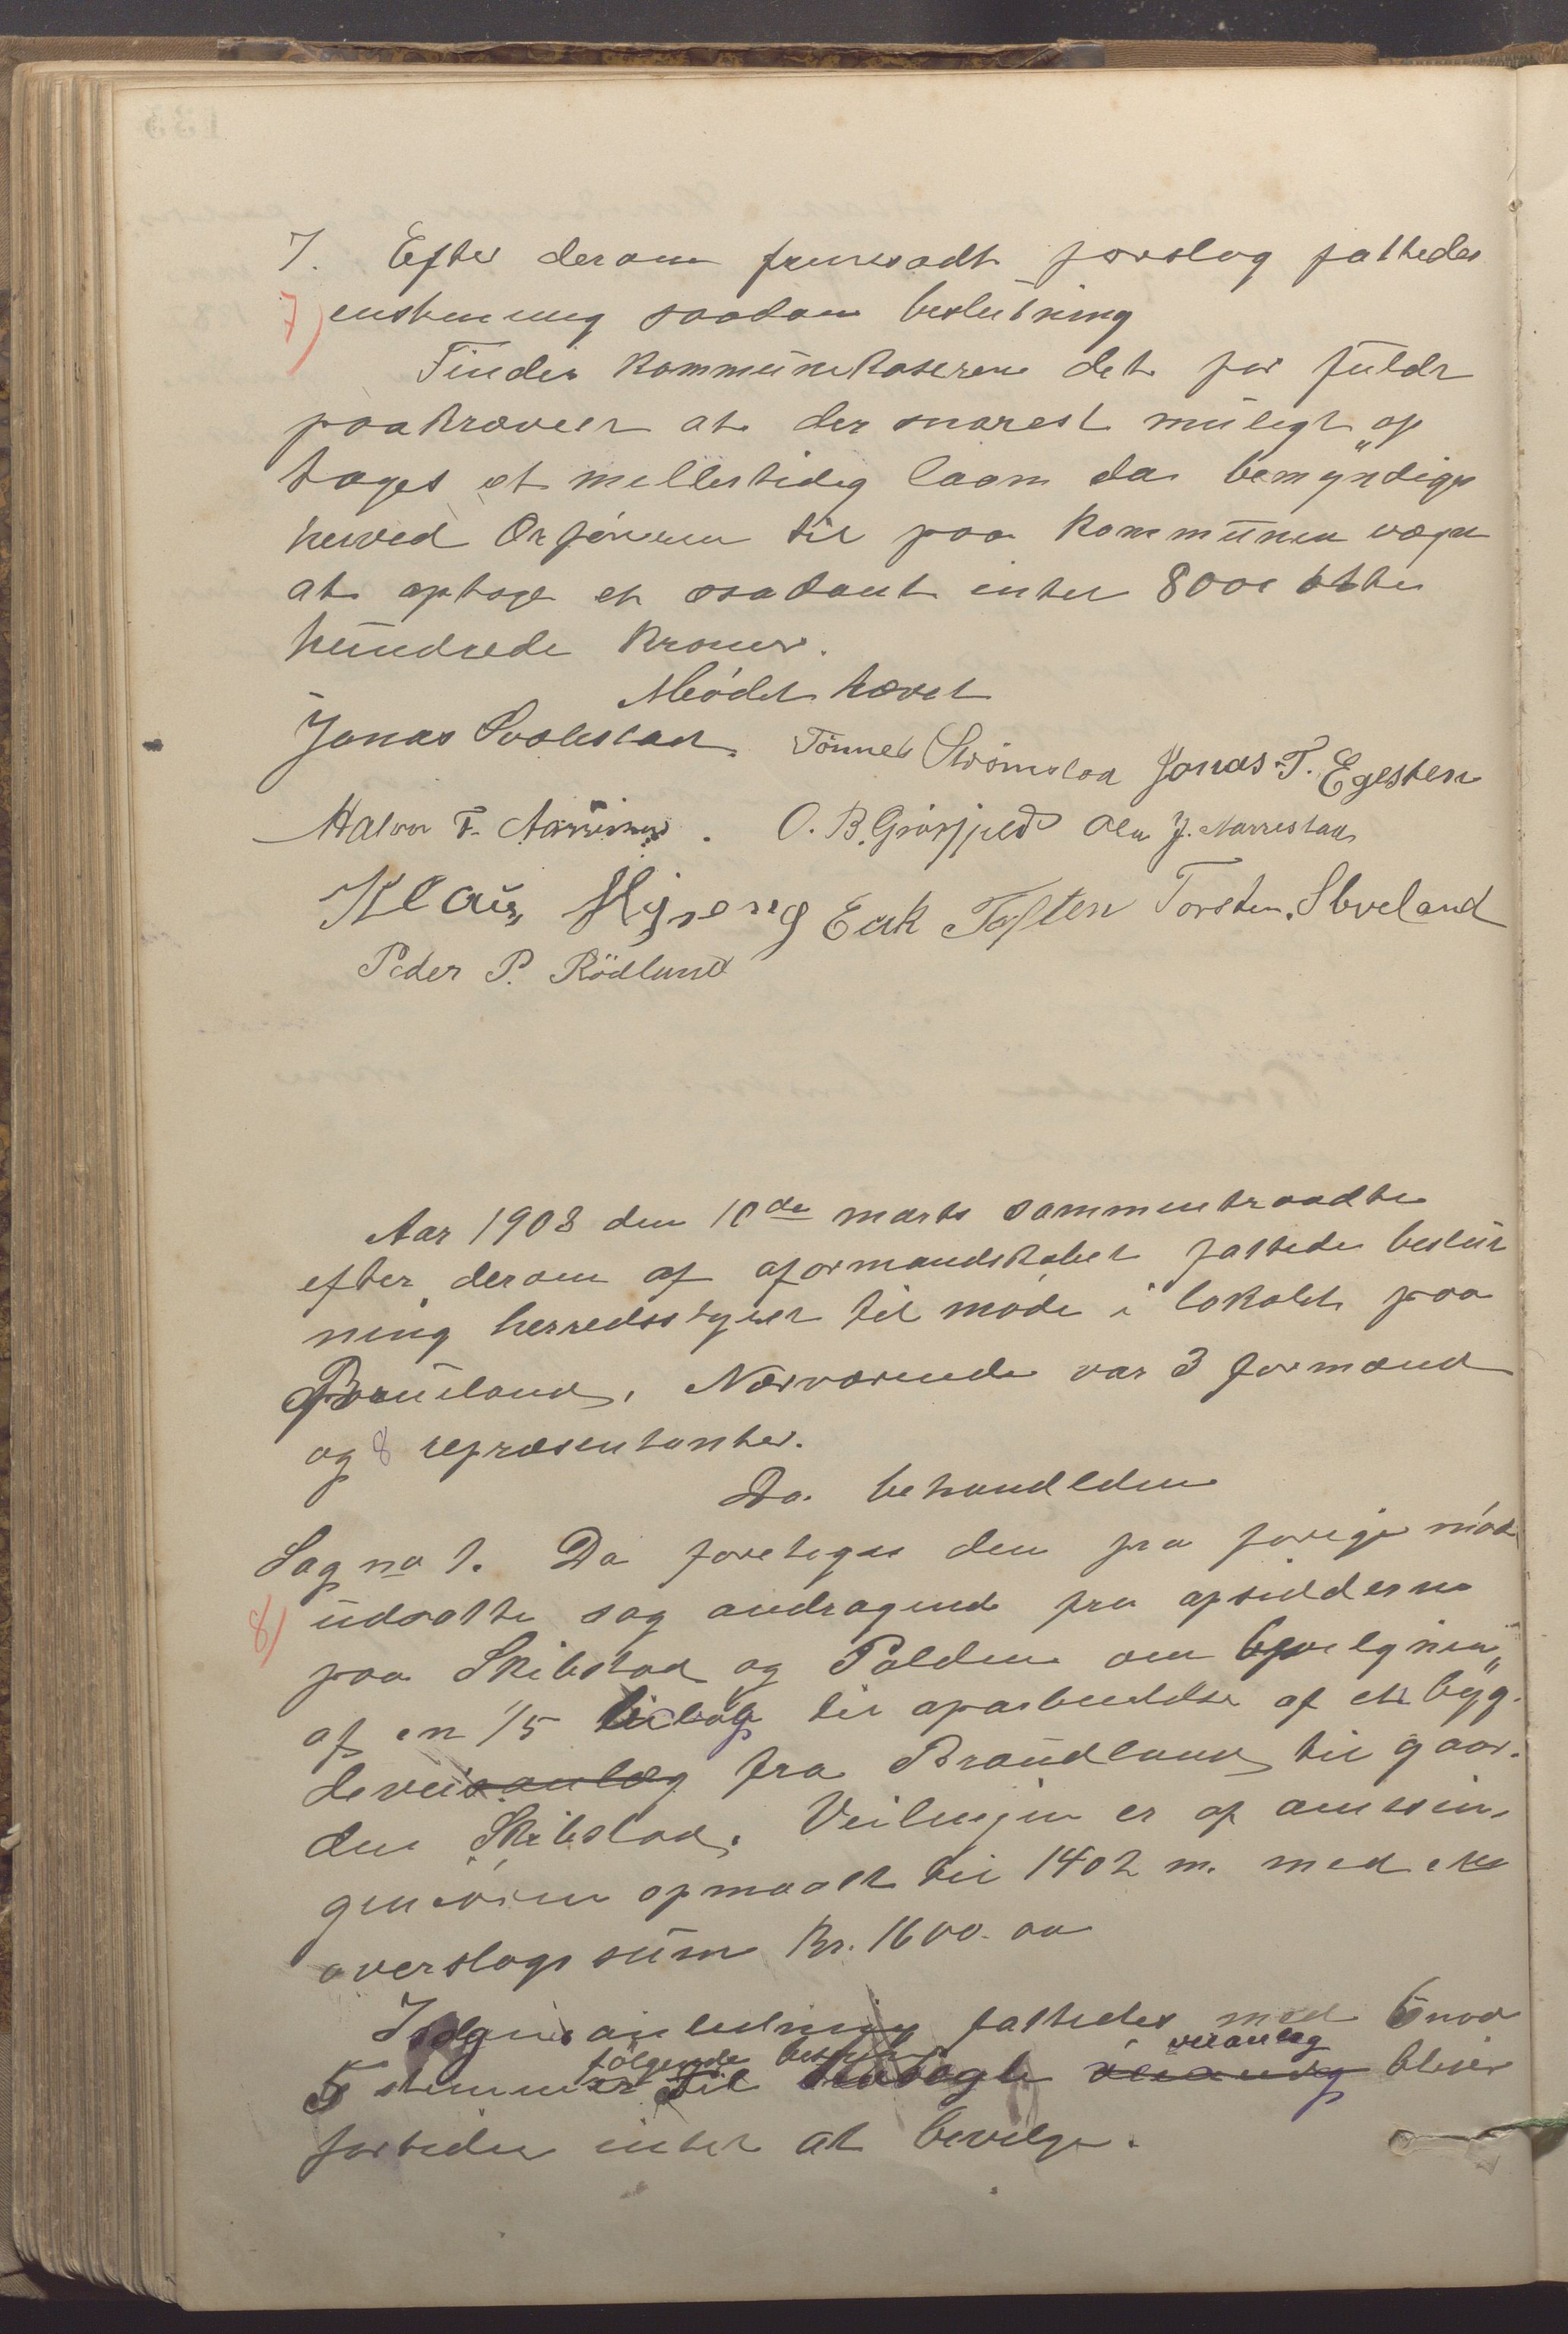 7. Efter derom fremsadt forslag fattedes
7) enstemmig saadan beslutning
Finder kommunekaseren det for fuldt
paakrævet at der snarest muligt op„
tages et mellertidig laan da bemyndiges
herved Orføreren til paa kommunen vegn
at optage et saadant intil 800 otte
hundrede kroner.
Mødet hævet
Jonas Svalestad. Tönnes Strömstad Jonas T. Egesten
Halvor T. O. B. Gråsfjeld Ola J. Narrestad
Klaus Erik Toften Torsten Sleveland
Peder P. Rödland
Aar 1908 den 10de marts sammentraadte
efter derom af aformandskabet fattede beslut
ning herredsstyret til møde i lokalet paa
Brauland. Nærværende var 3 formænd
og 8 repræsentanter.
Da behandlden
Sag no 1. Da foretoges den fra forige mød
8) udsatte sag andragende fra opsidderne
paa Skibstad og Polden om bevelgnin„
af en 1/5 til oparbeidelse af et byg-
deveisanlæg fra Braudland til gaar-
den Skibstad. Veilengden er af amtsin-
geniøren opmaalt til 1402 m. med en
overslags sum Kr. 1600.00
I anledning fattedes med 6 mod
følgende beslutn veianlæg
5 stemmer Til bliver
fortiden intet at bevelge.